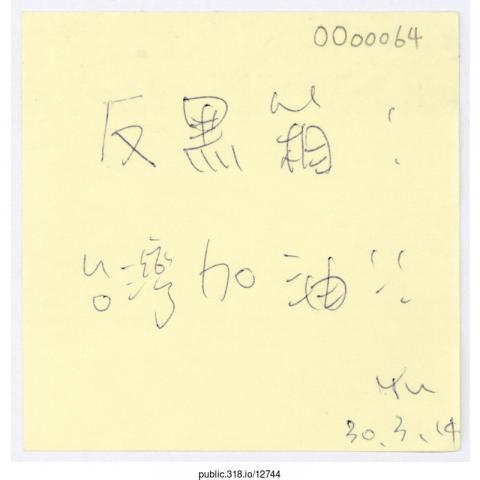 0000064
反黑箱!
台灣加油!!
Yu
30.3.14
public.318.io/12744